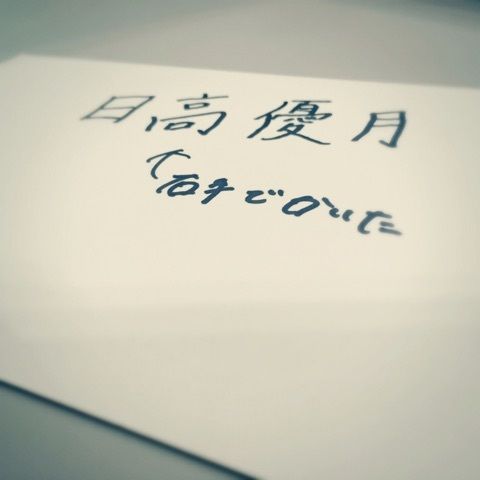 日高優月
↑右手でかいた